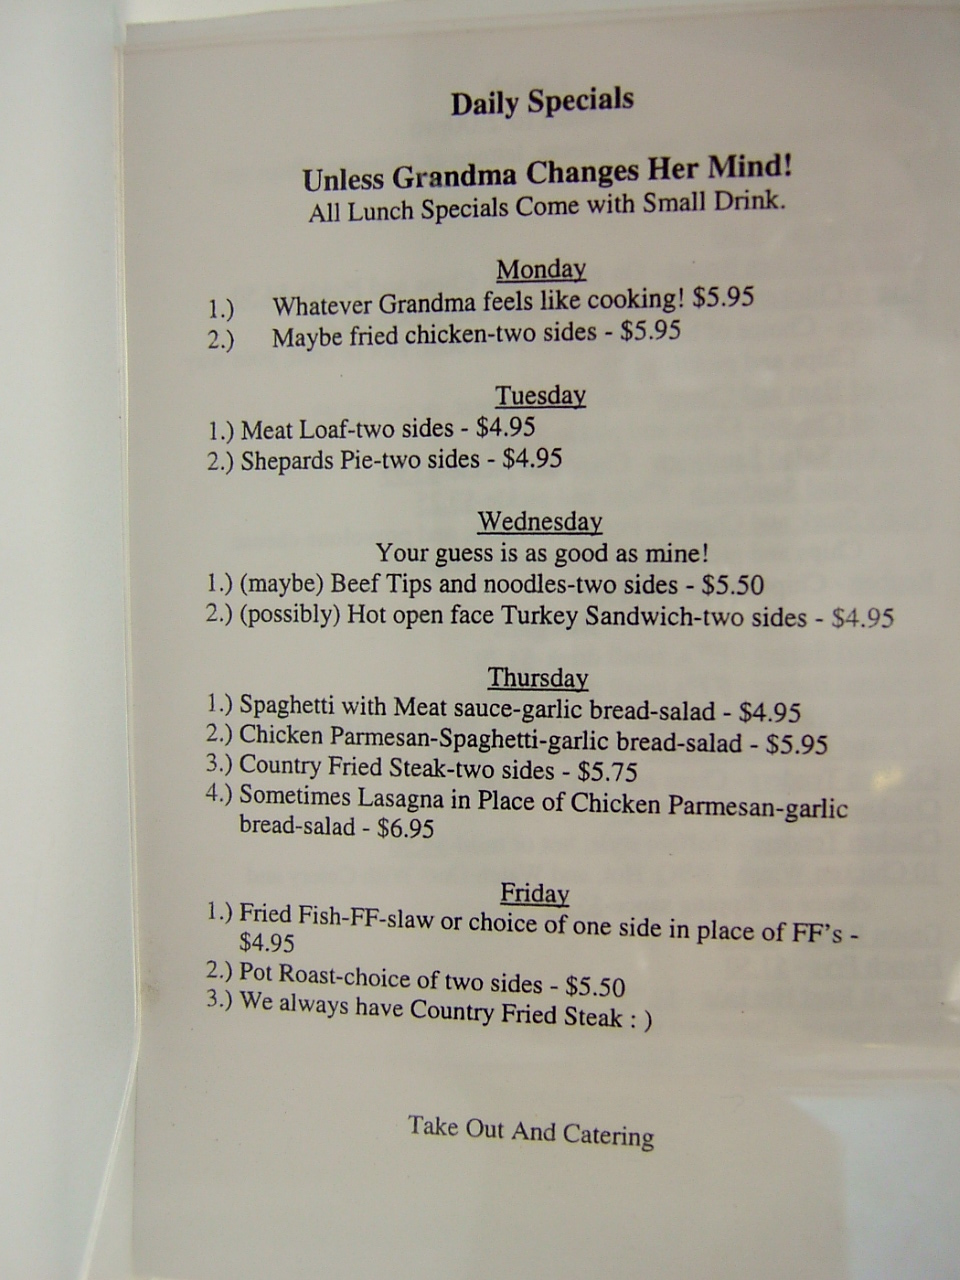 Daily Specials
Unless Grandma Changes Her Mind!
All Lunch Specials Come with Small Drink.
Monday
1.) Whatever Grandma feels like cooking! $5.95
2.) Maybe fried chicken-two sides - $5.95
Tuesday
1.) Meat Loaf-two sides - $4.95
2.) Shepards Pie-two sides - $4.95
Wednesday
Your guess is as good as mine!
1.) (maybe) Beef Tips and noodles-two sides - $5.50
2.) (possibly) Hot open face Turkey Sandwich-two sides - $4.95
Thursday
1.) Spaghetti with Meat sauce-garlic bread-salad - $4.95
2.) Chicken Parmesan-Spaghetti-garlic bread-salad - $5.95
3.) Country Fried Steak-two sides - $5.75
4.) Sometimes Lasagna in Place of Chicken Parmesan-garlic
bread-salad - $6.95
Friday
1.) Fried Fish-FF-slaw or choice of one side in place of FF's -
$4.95
2.) Pot Roast-choice of two sides - $5.50
3.) We always have Country Fried Steak : )
Take Out And Catering